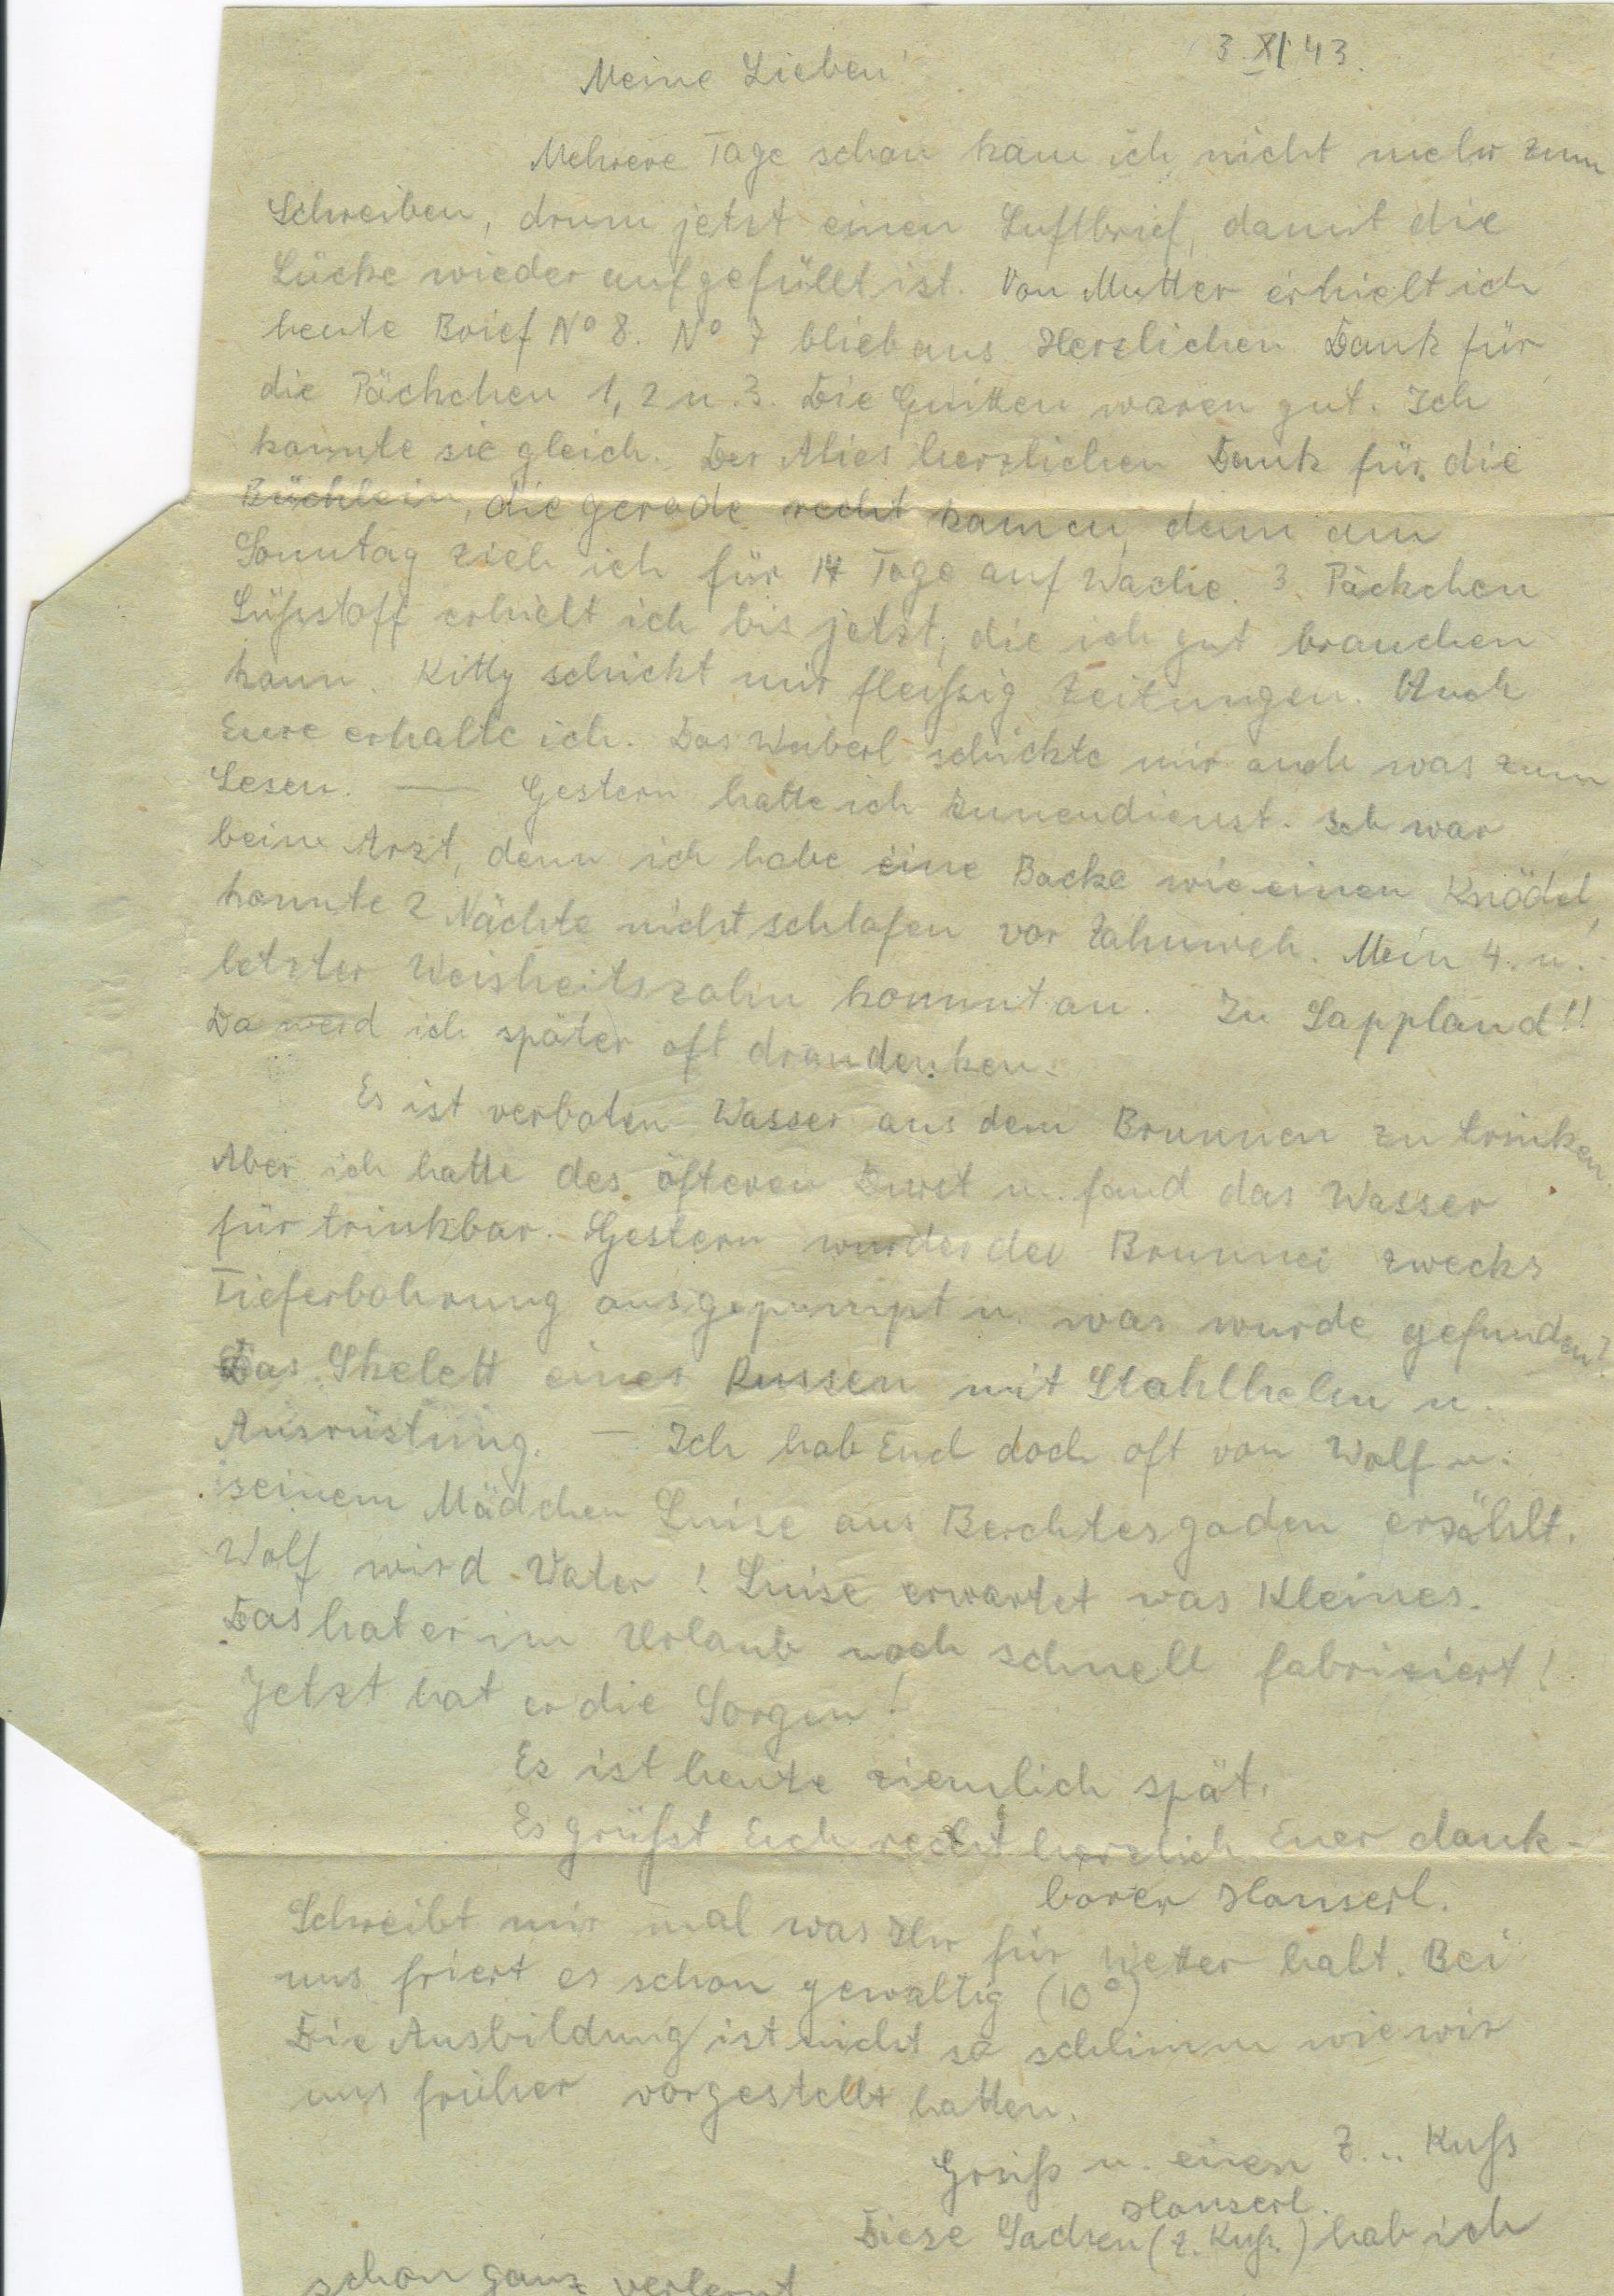 3.XI.43.
Meine Lieben!
Mehrere Tage schon kam ich nicht mehr zum
Schreiben, drum jetzt einen Luftbrief, damit die
Lücke wieder aufgefüllt ist. Von Mutter erhielt ich
heute Brief No 8. No 7 blieb aus. Herzlichen Dank für
die Päckchen 1, 2 u. 3. Die Quitten waren gut. Ich
kannte sie gleich. Der Mies herzlichen Dank für die
Büchlein, die gerade recht kamen, denn am
Sonntag zieh ich für 14 Tage auf Wache. 3 Päckchen
Süßstoff erhielt ich bis jetzt, die ich gut brauchen
kann. Kitty schickt mir fleißig Zeitungen. Auch
Eure erhalte ich. Das Weiberl schickte mir auch was zum
Lesen. — Gestern hatte ich Innendienst. Ich war
beim Arzt, denn ich habe eine Backe wie einen Knödel,
konnte 2 Nächte nicht schlafen vor Zahnweh. Mein 4. u.
letzter Weisheitszahn kommt an. In Lappland!!
Da werd ich später oft drandenken.
Es ist verboten Wasser aus dem Brunnen zu trinken.
Aber ich hatte des öfteren Durst u. fand das Wasser
für trinkbar. Gestern wurde der Brunnen zwecks
Tieferbohrung ausgepumpt u. was wurde gefunden?
Das Skelett eines Russen mit Stahlhelm u.
Ausrüstung. — Ich hab Euch doch oft von Wolf u.
seinem Mädchen Luise aus Berchtesgaden erzählt.
Wolf wird Vater! Luise erwartet was Kleines.
Das hat er im Urlaub noch schnell fabriziert!
Jetzt hat er die Sorgen!
Es ist heute ziemlich spät.
Es grüßt Euch recht herzlich Euer dank-
barer Hanserl.
Schreibt mir mal was Ihr für Wetter habt. Bei
uns friert es schon gewaltig (10°)
Die Ausbildung ist nicht so schlimm wie wir
uns früher vorgestellt hatten.
Gruß u. einen Z... Kuß
Hanserl.
Diese Sachen (Z. Kuß.) hab ich
schon ganz verlernt